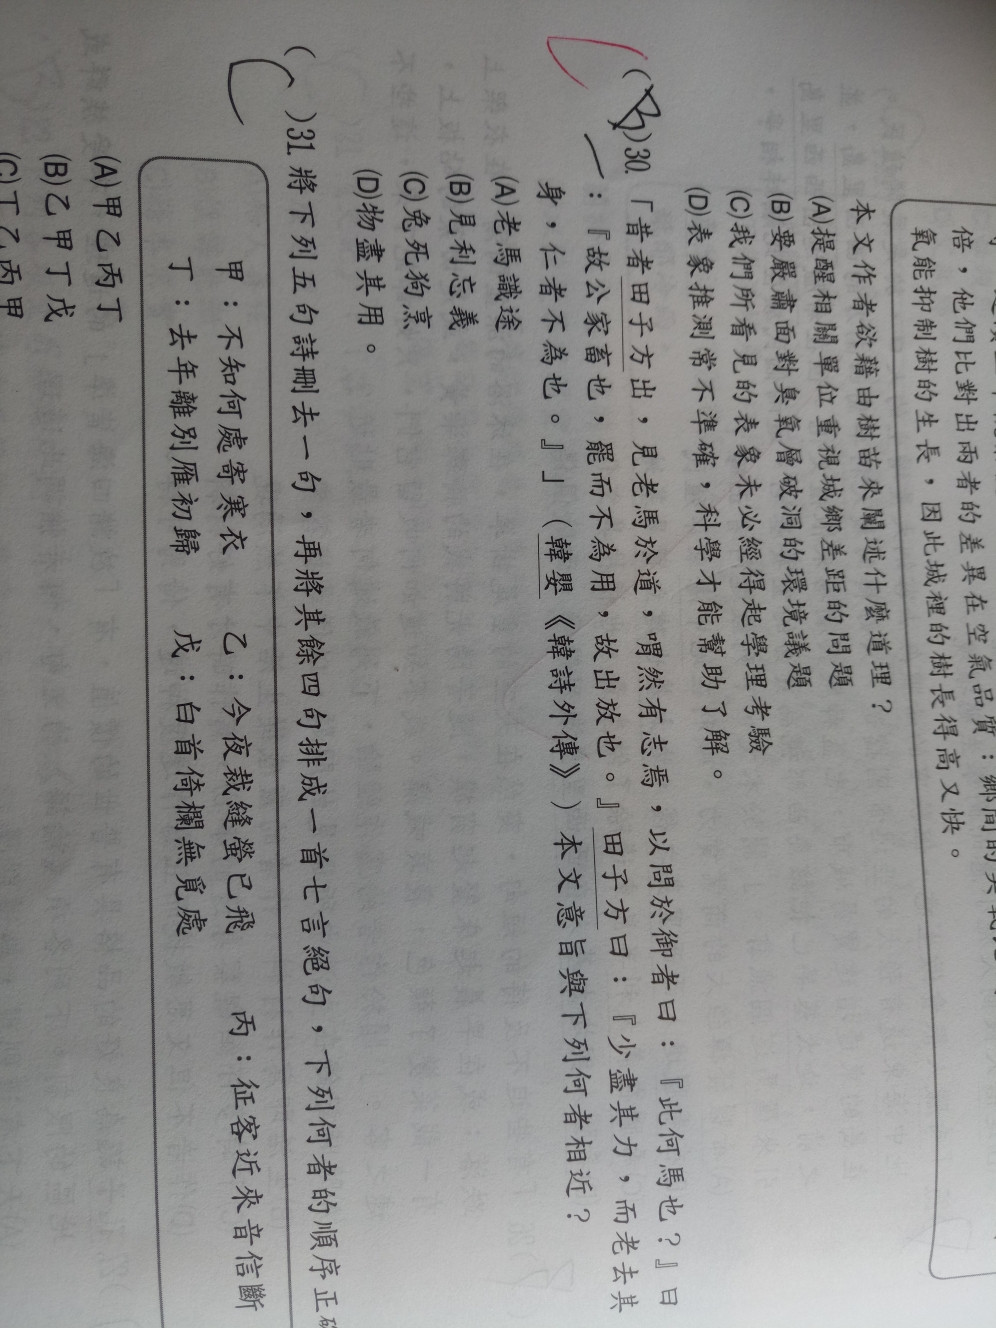 倍，他們比對出兩者的差異在空氣品質：鄉間的
氧能抑制樹的生長，因此城裡的樹長得高又快。
本文作者欲藉由樹苗來闡述什麼道理？
(A)提醒相關單位重視城鄉差距的問題
(B)要嚴肅面對臭氧層破洞的環境議題
(C)我們所看見的表象未必經得起學理考驗
(D)表象推測常不準確，科學才能幫助了解。
(B)30.「昔者田子方出，見老馬於道，喟然有志焉，以問於御者曰：『此何馬也？』曰
：『故公家畜也，罷而不為用，故出放也。』田子方曰：『少盡其力，而老去其
身，仁者不為也。』」（韓嬰《韓詩外傳》）本文意旨與下列何者相近？
(A)老馬識途
(B)見利忘義
(C)兔死狗烹
(D)物盡其用。
( )31.將下列五句詩刪去一句，再將其餘四句排成一首七言絕句，下列何者的順序正
甲：不知何處寄寒衣 乙：今夜裁縫螢已飛 丙：征客近來音信斷
丁：去年離別雁初歸 戊：白首倚欄無覓處
(A)甲乙丙丁
(B)乙甲丁戊
(C)丁乙丙甲